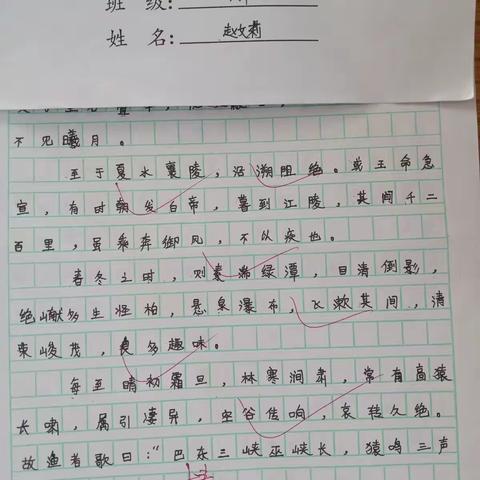 班 级:
姓 名: 赵文莉
不见曦月。
至于夏水襄陵，沿溯阻绝。或王命急
宣，有时朝发白帝，暮到江陵，其间千二
百里，虽乘奔御风，不以疾也。
春冬之时，则素湍绿潭，目清倒影，
绝巘多生怪柏，悬泉瀑布，飞漱其间，清
荣峻茂，良多趣味。
每至晴初霜旦，林寒涧肃，常有高猿
长啸，属引凄异，空谷传响，哀转久绝。
故渔者歌曰：“巴东三峡巫峡长，猿鸣三声